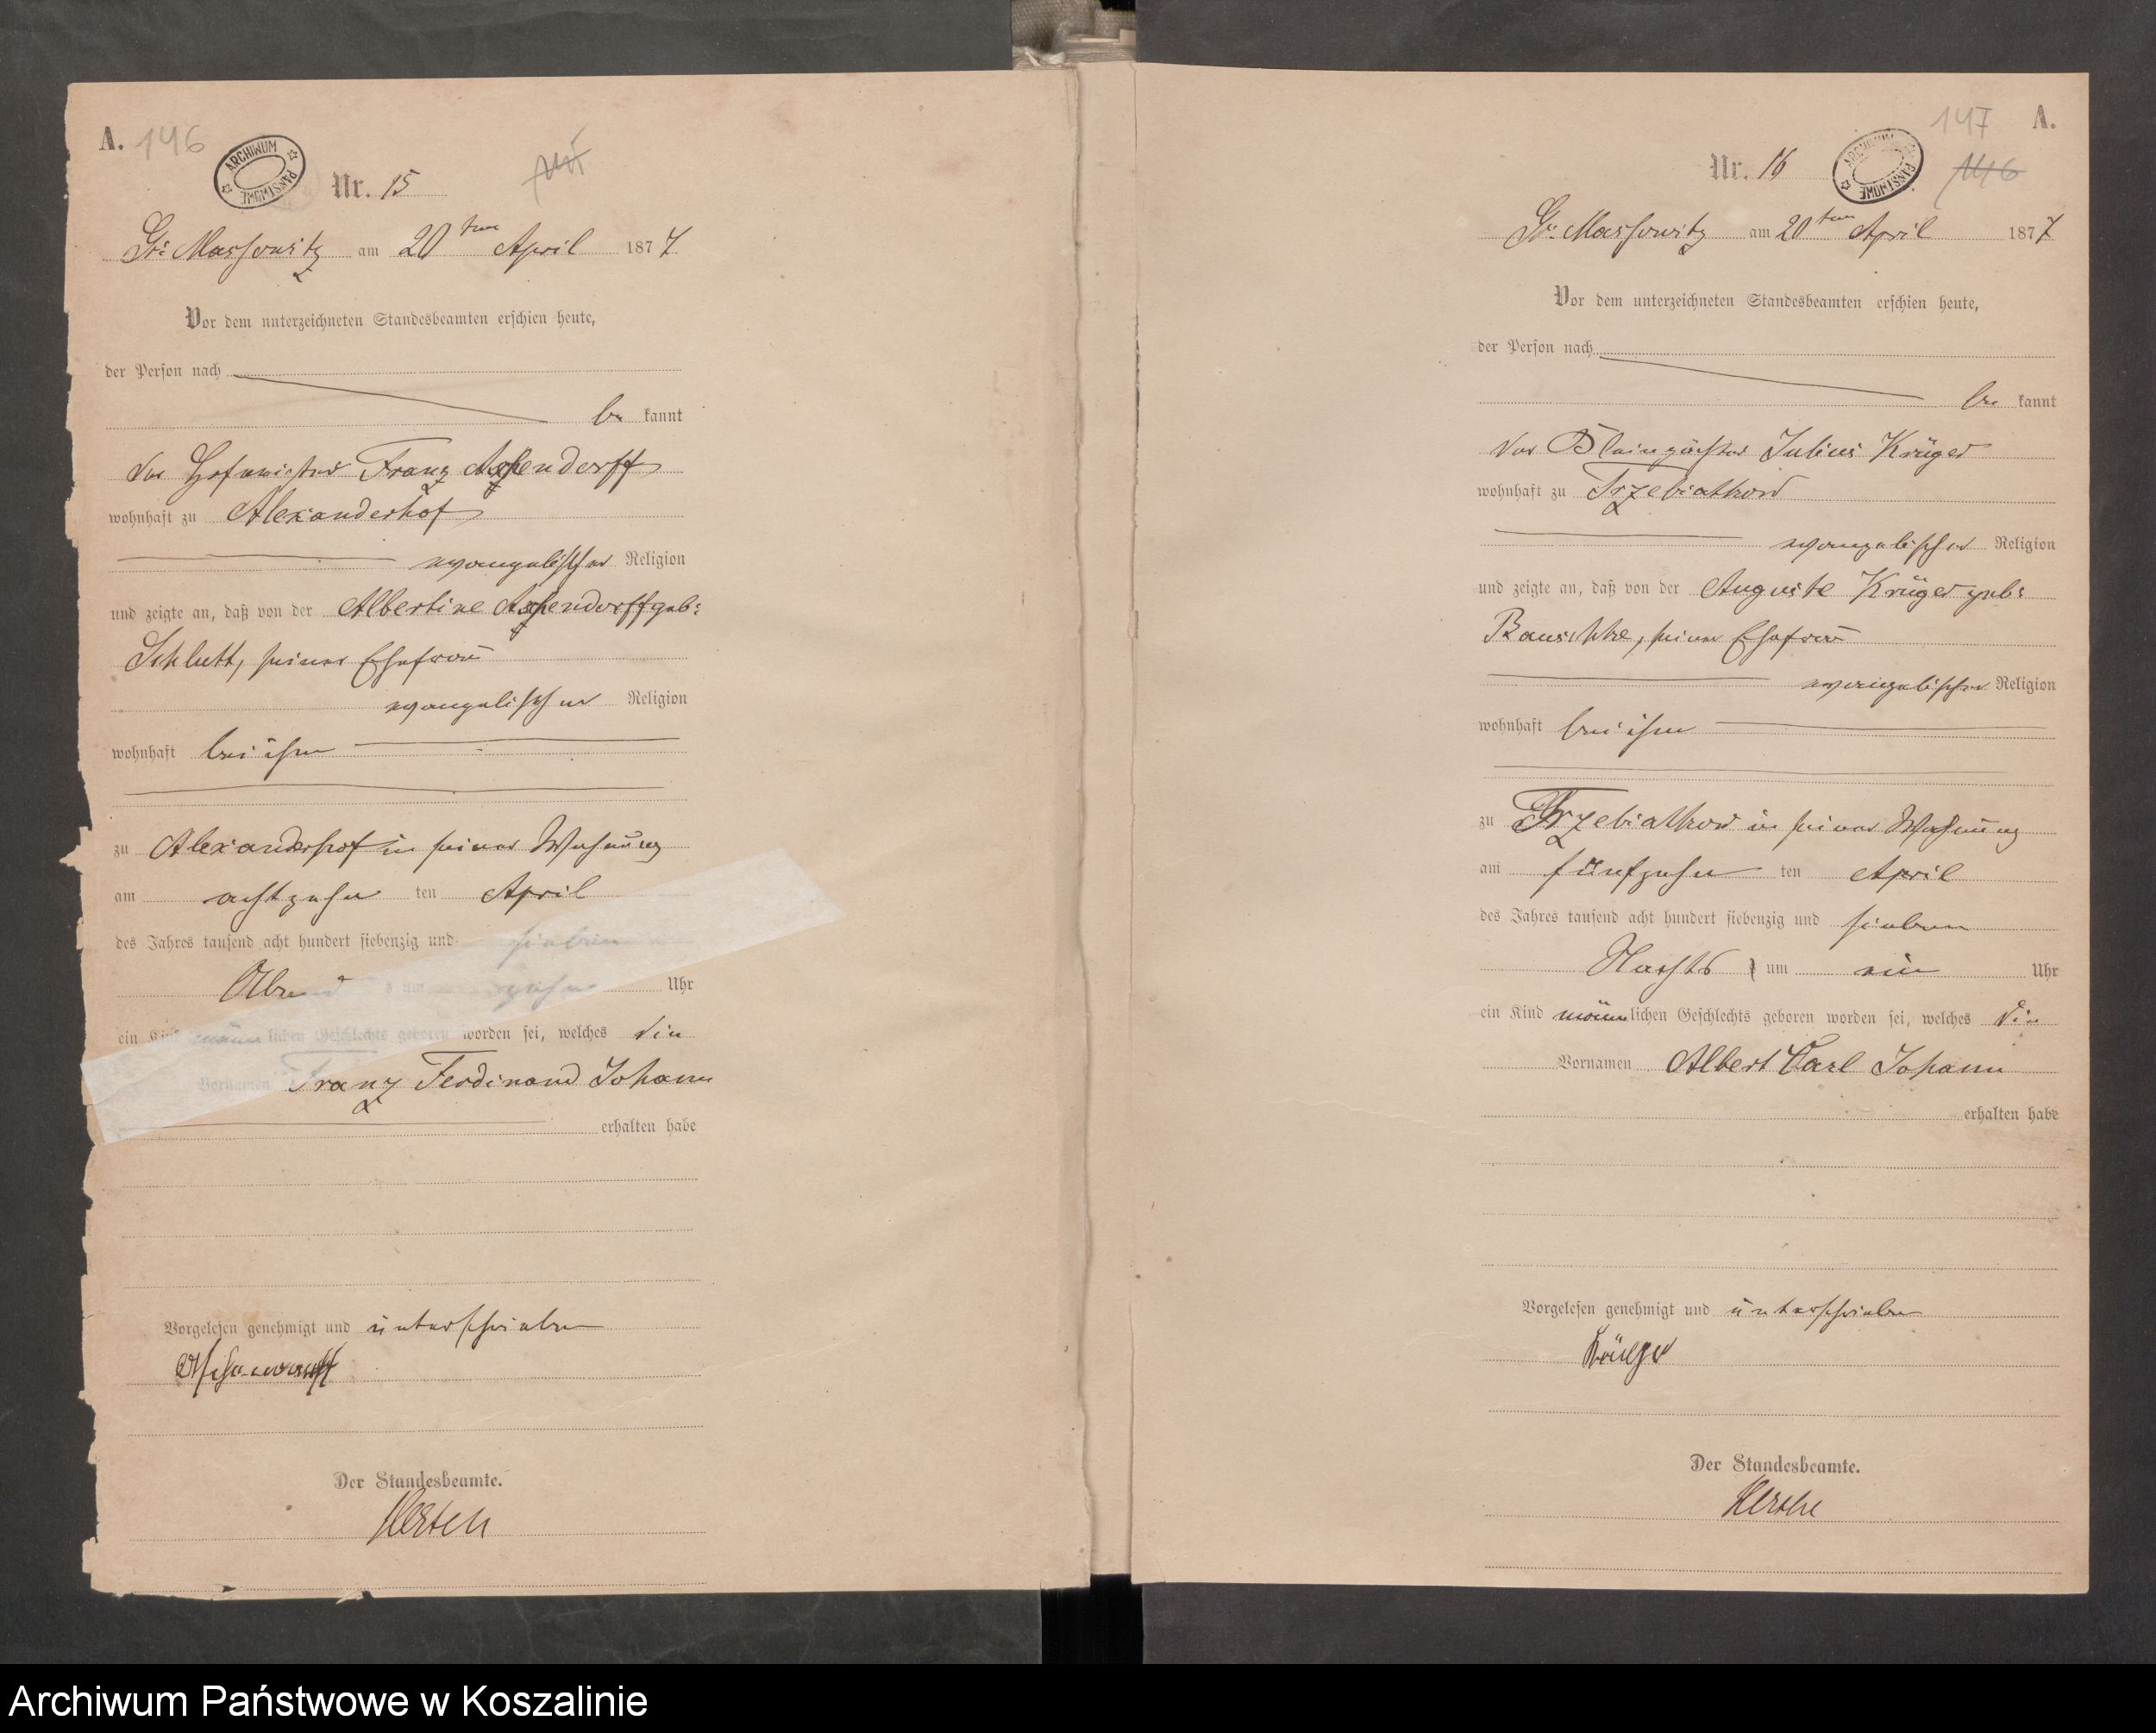 A. 146
ARCHIWUM PAŃSTWOWE
Nr. 15
Gr: Massowitz am 20ten April 1877
Vor dem unterzeichneten Standesbeamten erschien heute,
der Person nach
be kannt
der Hofmeister Franz
wohnhaft zu Alexanderhof
evangelischer Religion
und zeigte an, daß von der Albertine geb:
Schlutt, seiner Ehefrau
evangelischer Religion
wohnhaft bei ihm
zu Alexanderhof in seiner Wohnung
am achtzehn ten April
des Jahres tausend acht hundert siebenzig und sieben
Abend s um zehn Uhr
ein Kind männlichen Geschlechts geboren worden sei, welches die
Vornamen Franz Ferdinand Johann
erhalten habe
Vorgelesen genehmigt und unterschrieben
Der Standesbeamte.
147 A.
Nr. 16
ARCHIWUM PAŃSTWOWE
146
Gr: Massowitz am 20ten April 1877
Vor dem unterzeichneten Standesbeamten erschien heute,
der Person nach
be kannt
der Julius Krüger
wohnhaft zu Trzebiatkow
evangelischer Religion
und zeigte an, daß von der Auguste Krüger geb:
seiner Ehefrau
evangelischer Religion
wohnhaft bei ihm
zu Trzebiatkow in seiner Wohnung
am fünfzehn ten April
des Jahres tausend acht hundert siebenzig und sieben
Nachts um ein Uhr
ein Kind männlichen Geschlechts geboren worden sei, welches die
Vornamen Albert Carl Johann
erhalten habe
Vorgelesen genehmigt und unterschrieben
Krüger
Der Standesbeamte.
Archiwum Państwowe w Koszalinie